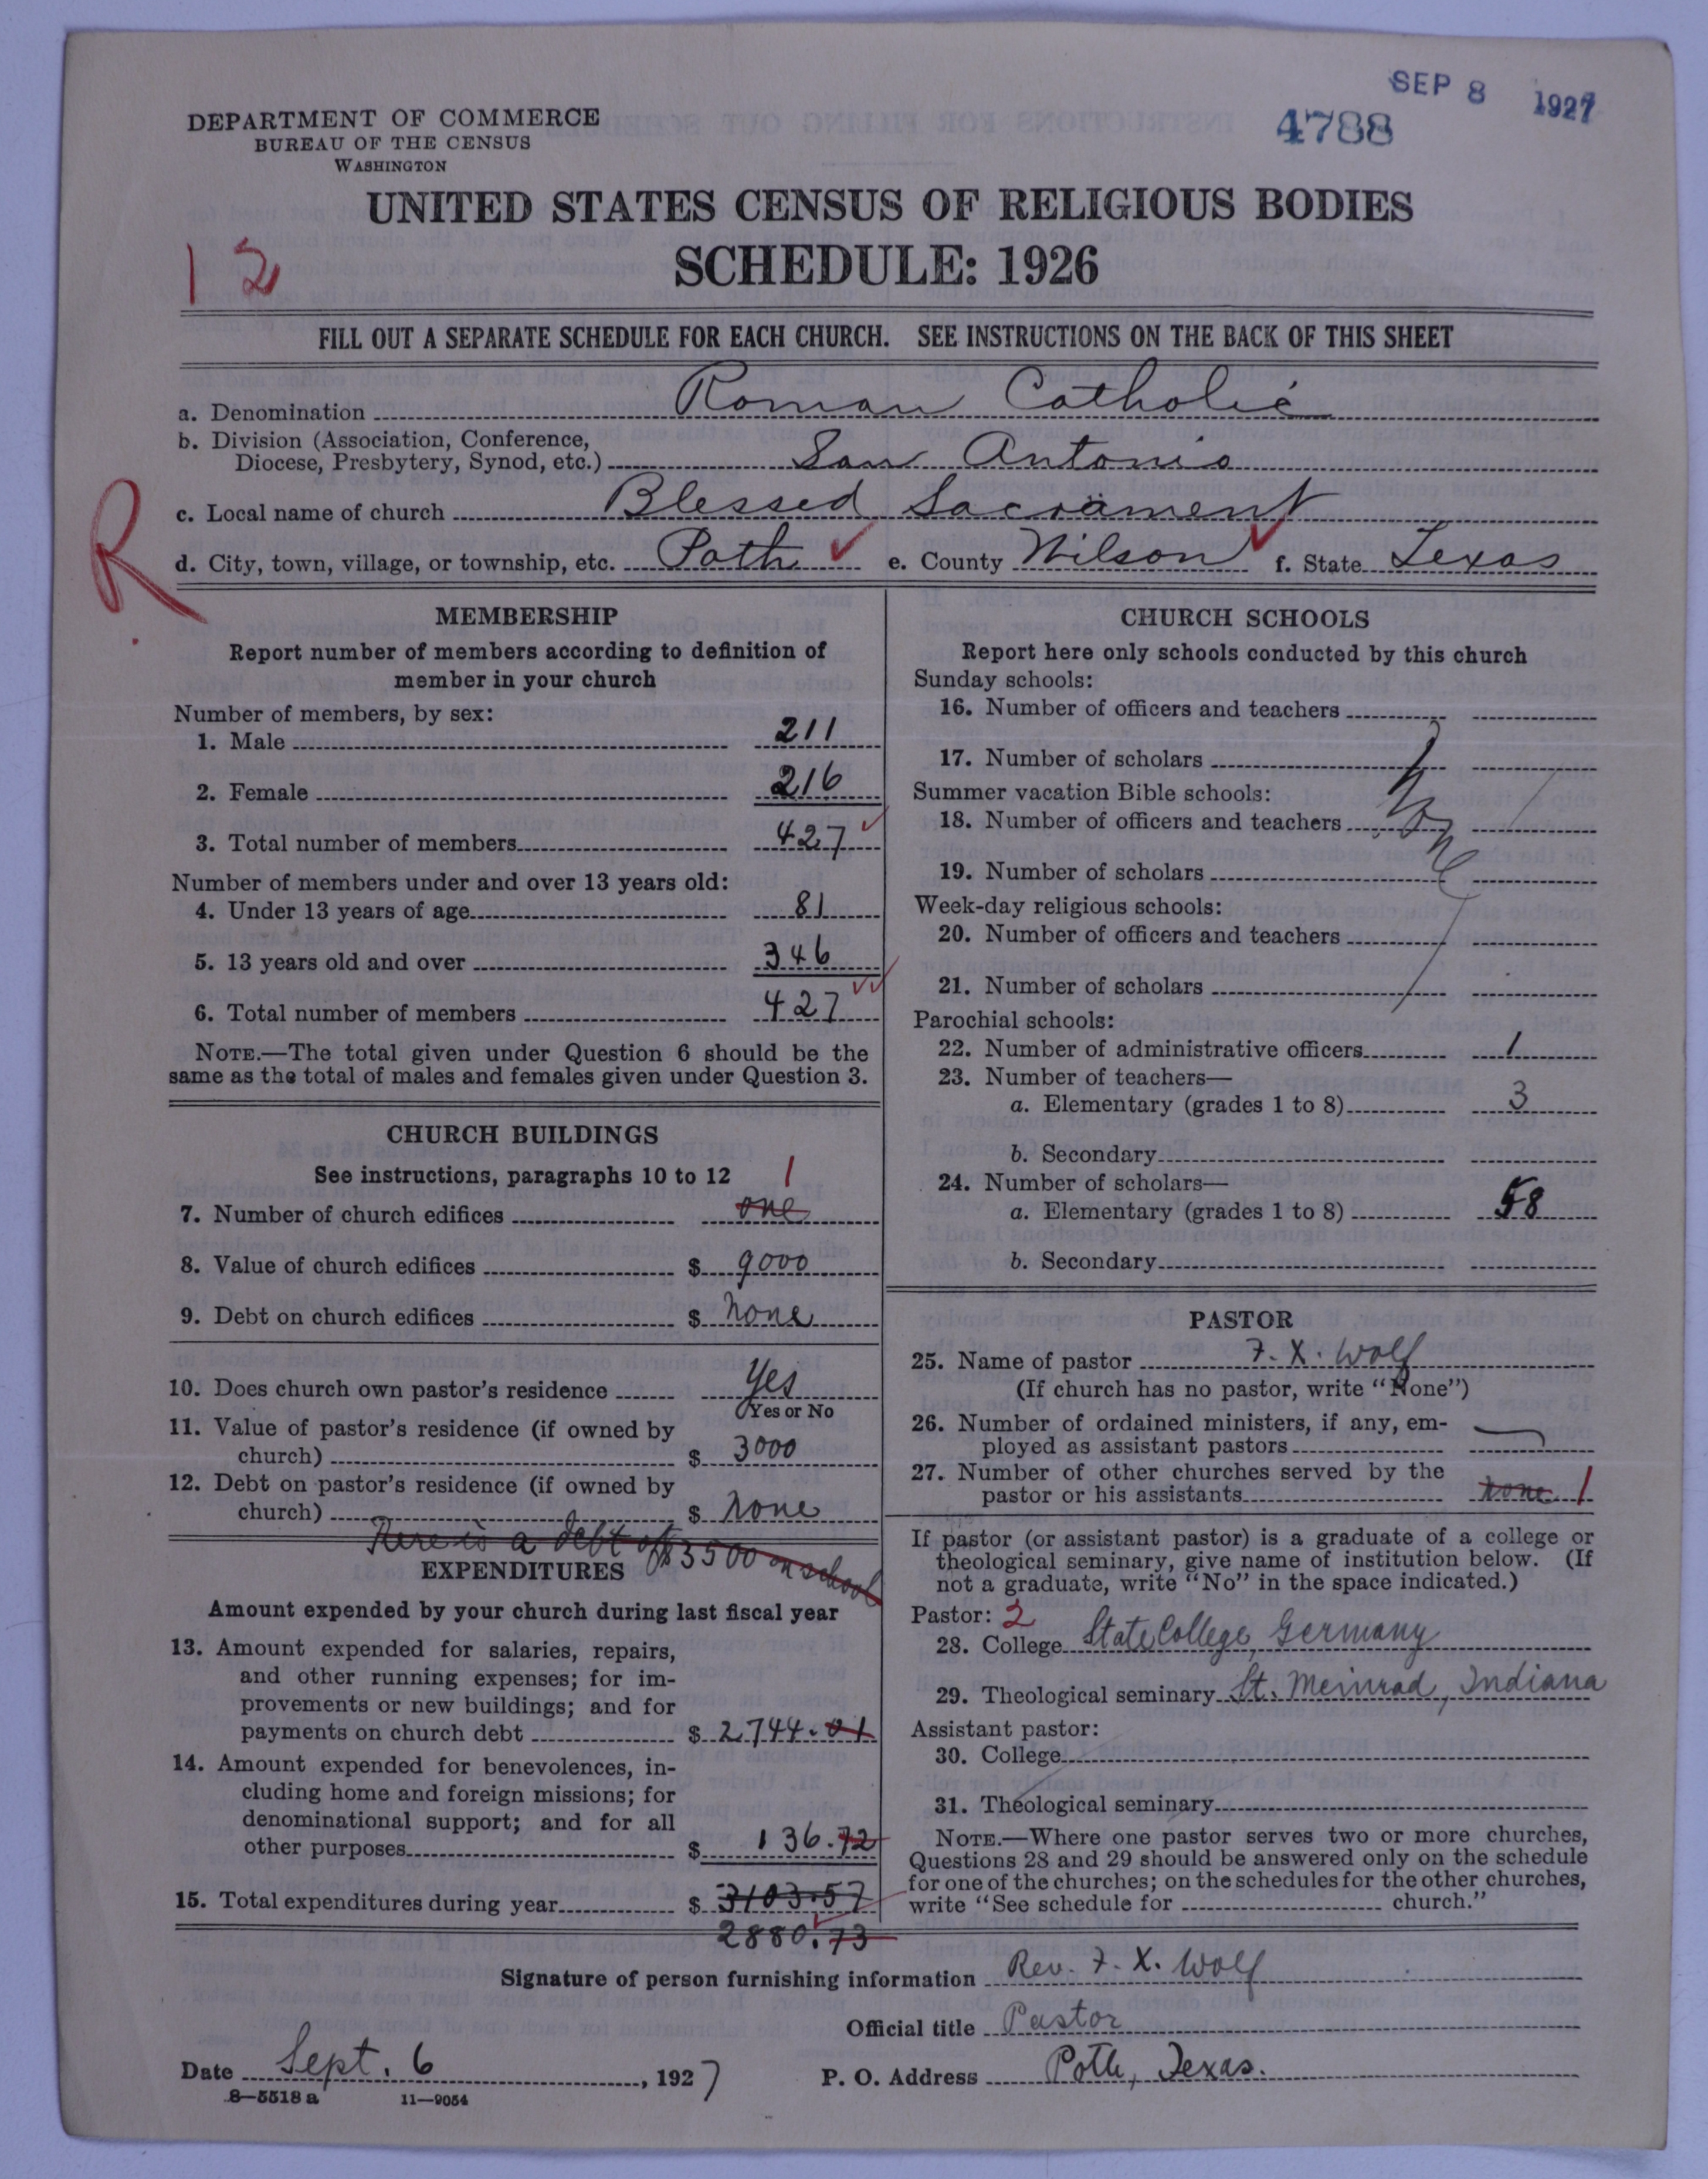 SEP 8 1927
4788
DEPARTMENT OF COMMERCE
BUREAU OF THE CENSUS
WASHINGTON
UNITED STATES CENSUS OF RELIGIOUS BODIES
12
SCHEDULE: 1926
FILL OUT A SEPARATE SCHEDULE FOR EACH CHURCH. SEE INSTRUCTIONS ON THE BACK OF THIS SHEET
a. Denomination Roman Catholic
b. Division (Association, Conference,
Diocese, Presbytery, Synod, etc.) San Antonio
c. Local name of church Blessed Sacrament
R
d. City, town, village, or township, etc. Poth e. County Wilson f. State Texas
MEMBERSHIP
Report number of members according to definition of
member in your church
Number of members, by sex:
1. Male 211
2. Female 216
3. Total number of members 427
Number of members under and over 13 years old:
4. Under 13 years of age 81
5. 13 years old and over 346
6. Total number of members 427
NOTE.—The total given under Question 6 should be the
same as the total of males and females given under Question 3.
CHURCH BUILDINGS
See instructions, paragraphs 10 to 12
7. Number of church edifices one 1
8. Value of church edifices $ 9000
9. Debt on church edifices $ none
10. Does church own pastor's residence Yes
Yes or No
11. Value of pastor's residence (if owned by
church) $ 3000
12. Debt on pastor's residence (if owned by
church) $ none
There is a debt of $3500 on school
EXPENDITURES
Amount expended by your church during last fiscal year
13. Amount expended for salaries, repairs,
and other running expenses; for im-
provements or new buildings; and for
payments on church debt $ 2744.01
14. Amount expended for benevolences, in-
cluding home and foreign missions; for
denominational support; and for all
other purposes $ 136.72
15. Total expenditures during year $ 3103.57
2880.73
CHURCH SCHOOLS
Report here only schools conducted by this church
Sunday schools:
16. Number of officers and teachers
17. Number of scholars
Summer vacation Bible schools:
18. Number of officers and teachers
None
19. Number of scholars
Week-day religious schools:
20. Number of officers and teachers
21. Number of scholars
Parochial schools:
22. Number of administrative officers 1
23. Number of teachers—
a. Elementary (grades 1 to 8) 3
b. Secondary
24. Number of scholars—
a. Elementary (grades 1 to 8) 58
b. Secondary
PASTOR
25. Name of pastor F. X. Wolf
(If church has no pastor, write "None")
26. Number of ordained ministers, if any, em-
ployed as assistant pastors
27. Number of other churches served by the
pastor or his assistants none 1
If pastor (or assistant pastor) is a graduate of a college or
theological seminary, give name of institution below. (If
not a graduate, write "No" in the space indicated.)
Pastor: 2
28. College State College, Germany
29. Theological seminary St. Meinrad, Indiana
Assistant pastor:
30. College
31. Theological seminary
NOTE.—Where one pastor serves two or more churches,
Questions 28 and 29 should be answered only on the schedule
for one of the churches; on the schedules for the other churches,
write "See schedule for church."
Signature of person furnishing information Rev. F. X. Wolf
Official title Pastor
Date Sept. 6, 1927 P. O. Address Poth, Texas.
8—5518 a 11—9054